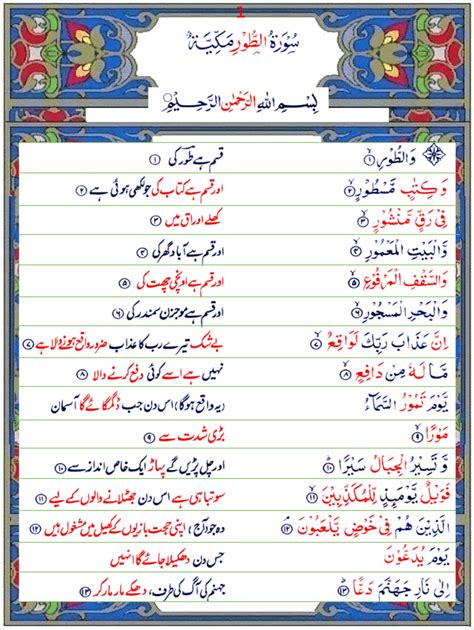 1
سُوْرَةُ الطُّوْرِ مَكِّيَّةٌ
بِسْمِ اللهِ الرَّحْمٰنِ الرَّحِيْمِ
وَالطُّوْرِ ۱ قسم ہے طُور کی ۱
وَكِتٰبٍ مَّسْطُوْرٍ ۲ اور قسم ہے کتاب کی جو لکھی ہوئی ہے ۲
فِيْ رَقٍّ مَّنْشُوْرٍ ۳ کھلے اوراق میں ۳
وَّالْبَيْتِ الْمَعْمُوْرِ ۴ اور قسم ہے آباد گھر کی ۴
وَالسَّقْفِ الْمَرْفُوْعِ ۵ اور قسم ہے اونچی چھت کی ۵
وَالْبَحْرِ الْمَسْجُوْرِ ۶ اور قسم ہے موجزن سمندر کی ۶
اِنَّ عَذَابَ رَبِّكَ لَوَاقِعٌ ۷ بے شک تیرے رب کا عذاب ضرور واقع ہونے والا ہے ۷
مَّا لَهٗ مِنْ دَافِعٍ ۸ نہیں ہے اسے کوئی دفع کرنے والا ۸
يَّوْمَ تَمُوْرُ السَّمَآءُ (یہ واقع ہوگا) اس دن جب ڈگمگائے گا آسمان
مَوْرًا ۹ بڑی شدت سے ۹
وَّتَسِيْرُ الْجِبَالُ سَيْرًا ۱۰ اور چل پڑیں گے پہاڑ ایک خاص انداز سے ۱۰
فَوَيْلٌ يَّوْمَئِذٍ لِّلْمُكَذِّبِيْنَ ۱۱ سو تباہی ہے اس دن جھٹلانے والوں کے لیے ۱۱
الَّذِيْنَ هُمْ فِيْ خَوْضٍ يَّلْعَبُوْنَ ۱۲ وہ جو (آج) اپنی حجت بازیوں کے کھیل میں مشغول ہیں ۱۲
يَوْمَ يُدَعُّوْنَ جس دن دھکیلا جائے گا انہیں
اِلٰى نَارِ جَهَنَّمَ دَعًّا ۱۳ جہنم کی آگ کی طرف، دھکے مار مار کر ۱۳